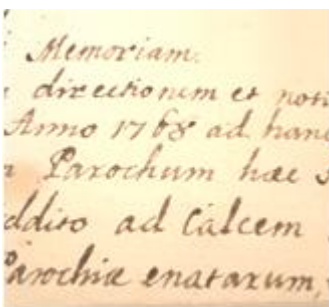 Memoriam.
directionem et noti
Anno 1768 ad hanc
Parochum hæc
ddito ad Calcem
Parochiæ enatarum,